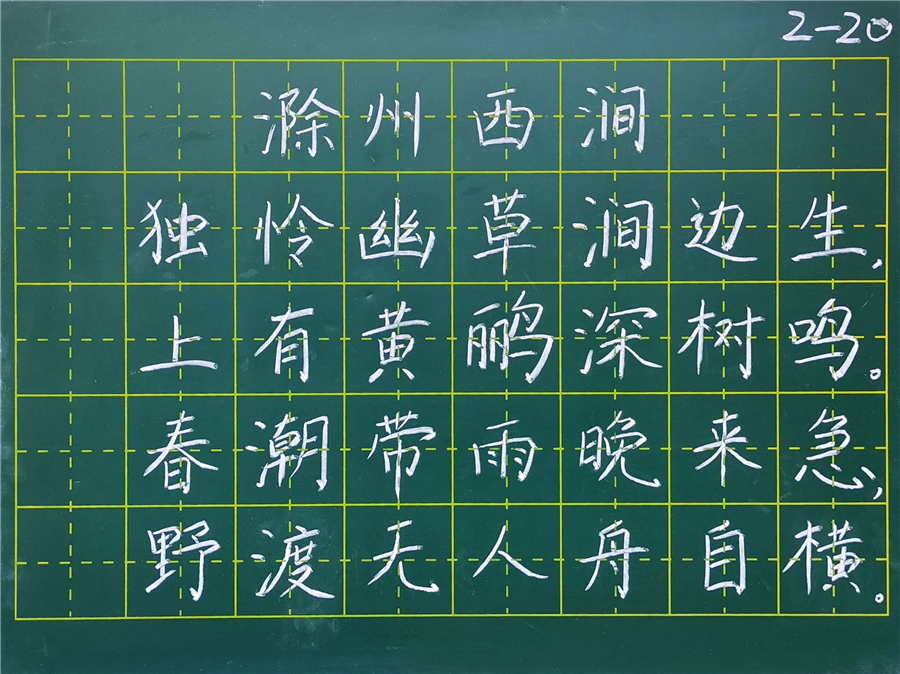 2-20
滁州西涧
独怜幽草涧边生,
上有黄鹂深树鸣。
春潮带雨晚来急,
野渡无人舟自横。